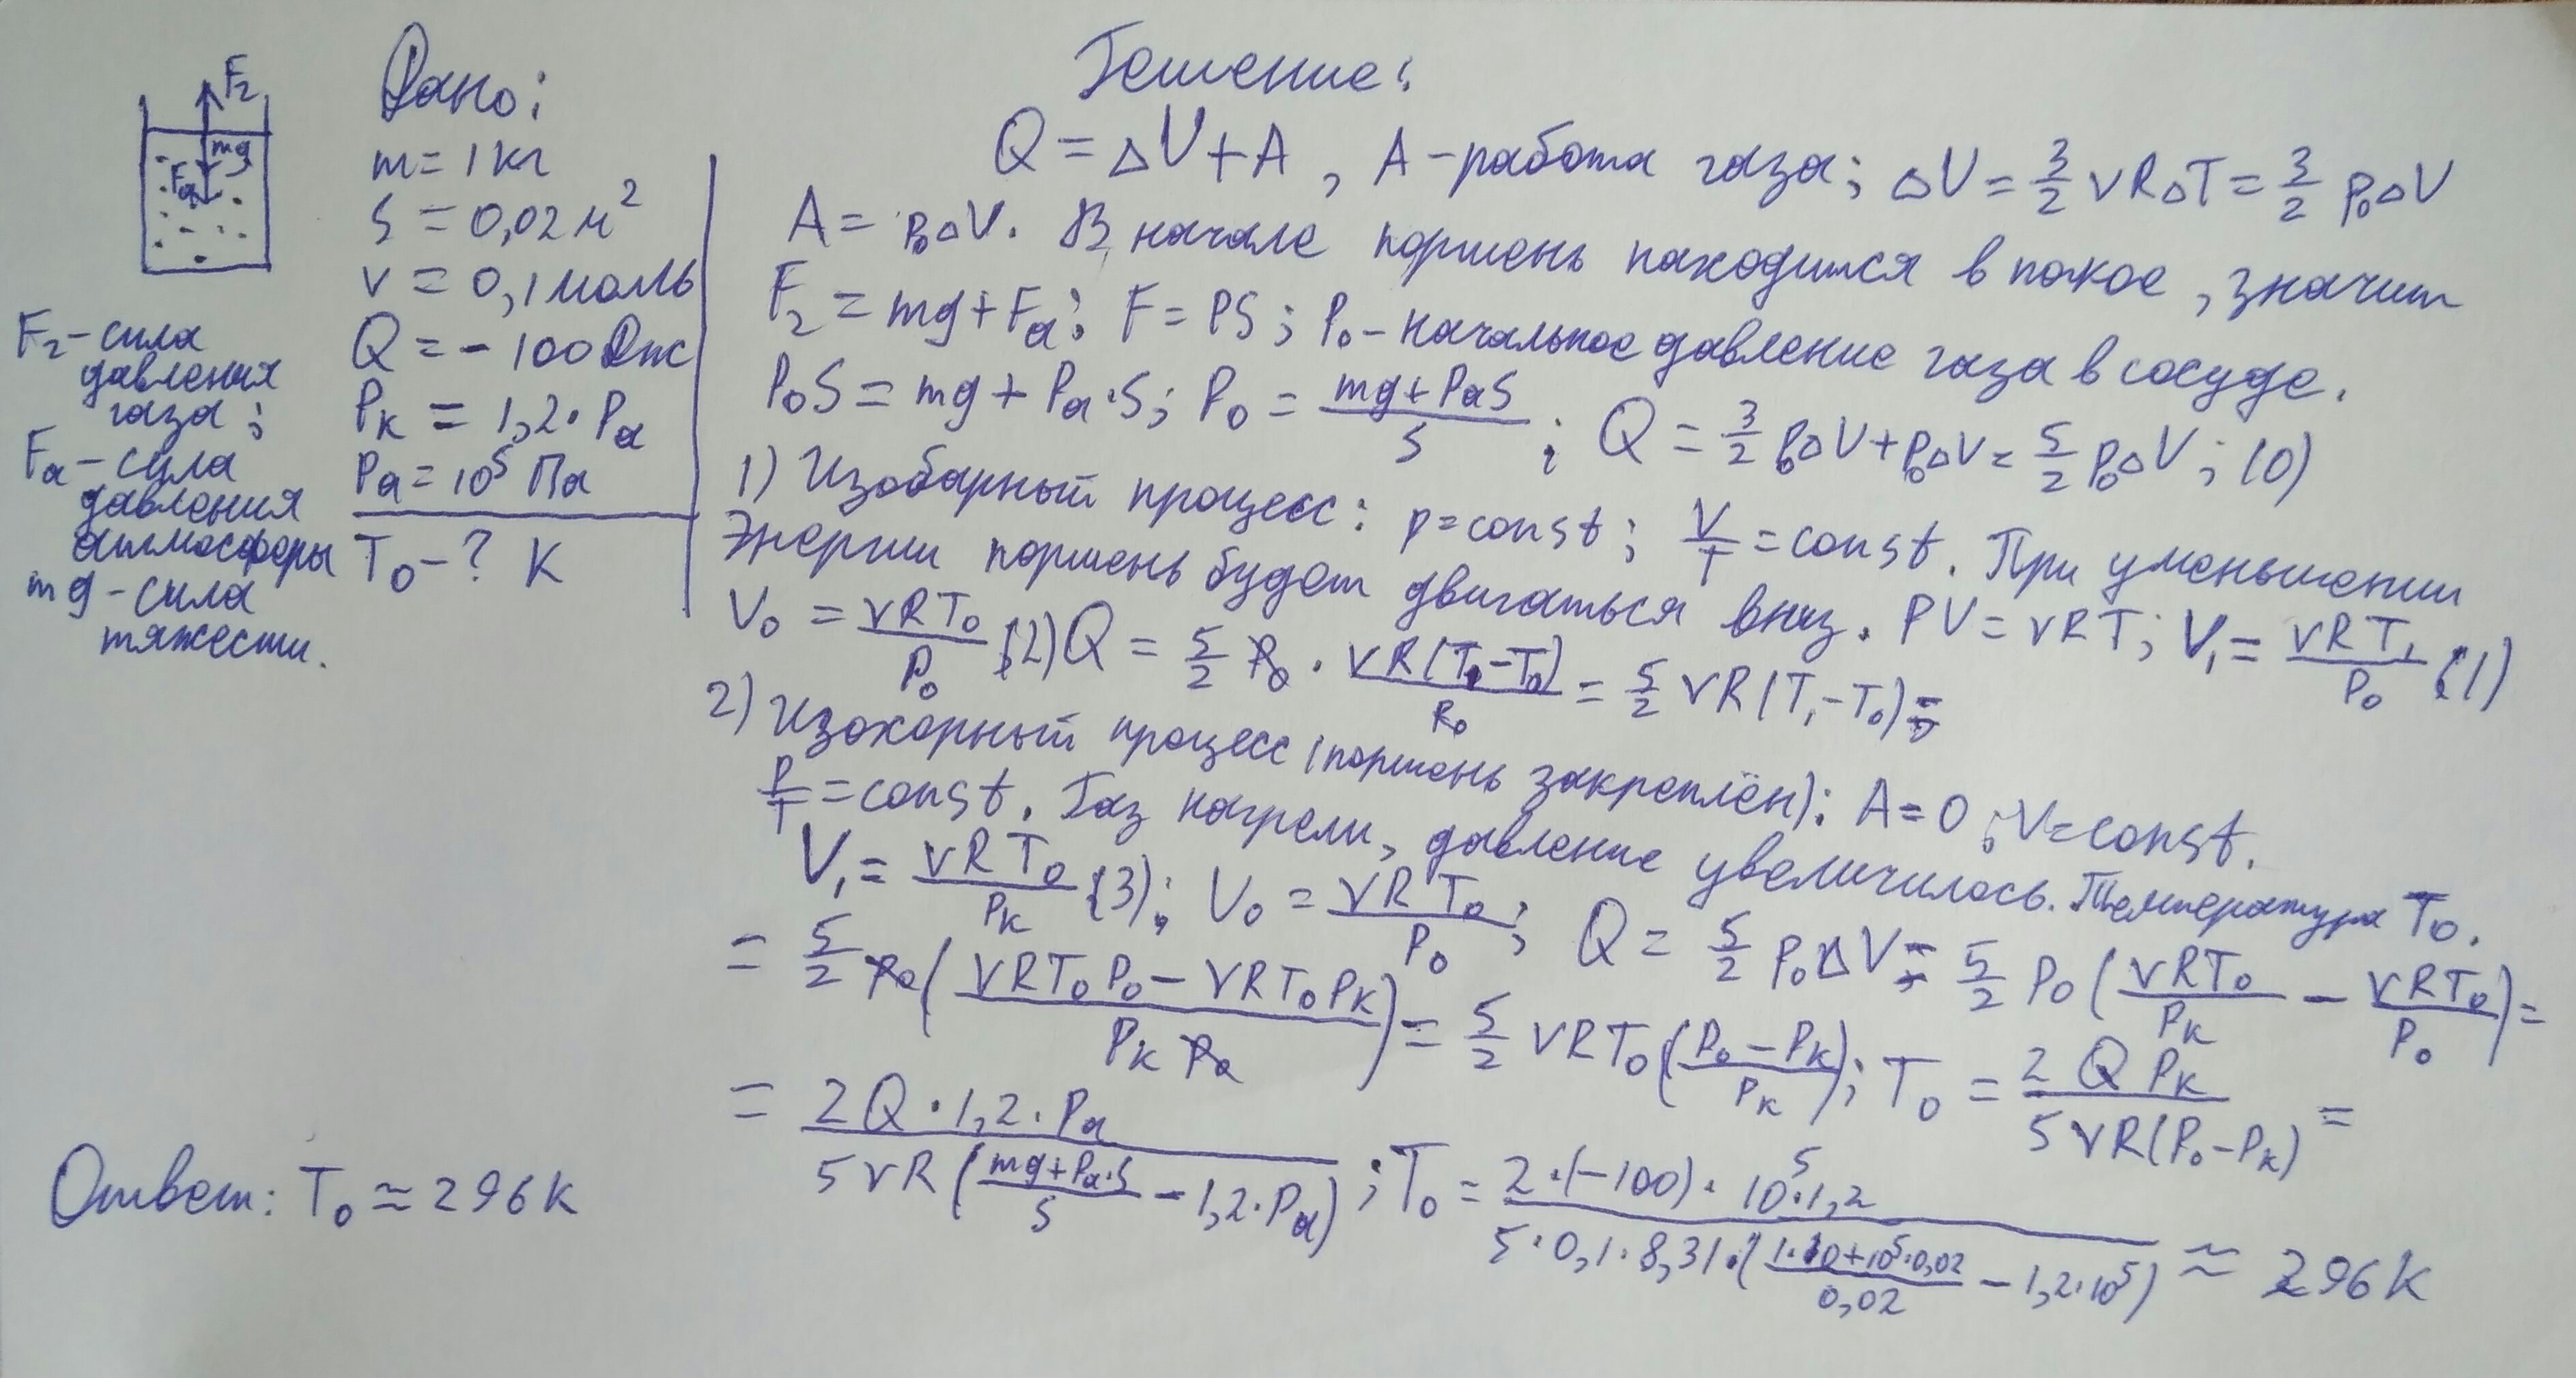 F₂
mg
Fа
Дано:
m = 1 кг
S = 0,02 м²
ν = 0,1 моль
Q = - 100 Дж
Pк = 1,2 · Pа
Pа = 10⁵ Па
T₀ - ? К
F₂ - сила
давления
газа;
Fа - сила
давления
атмосферы
mg - сила
тяжести.
Решение:
Q = ΔU + A, A - работа газа; ΔU = 3/2 νRΔT = 3/2 p₀ΔV
A = p₀ΔV. В начале поршень находился в покое, значит
F₂ = mg + Fа; F = PS; P₀ - начальное давление газа в сосуде.
P₀S = mg + Pа·S; P₀ = (mg + PаS)/S; Q = 3/2 p₀ΔV + p₀ΔV = 5/2 p₀ΔV; (0)
1) Изобарный процесс: p = const; V/T = const. При уменьшении
Энергии поршень будет двигаться вниз. PV = νRT; V₁ = νRT₁/P₀ (1)
V₀ = νRT₀/P₀ (2) Q = 5/2 P₀ · νR(T₁ - T₀)/P₀ = 5/2 νR(T₁ - T₀) =
2) Изохорный процесс (поршень закреплён): A = 0; V = const.
P/T = const. Газ нагрели, давление увеличилось. Температура T₀.
V₁ = νRT₀/Pк (3); V₀ = νRT₀/P₀; Q = 5/2 p₀ΔV = 5/2 P₀(νRT₀/Pк - νRT₀/P₀) =
= 5/2 P₀((νRT₀P₀ - νRT₀Pк)/(Pк P₀)) = 5/2 νRT₀((P₀ - Pк)/Pк); T₀ = 2QPк/(5νR(P₀ - Pк)) =
= 2Q · 1,2 · Pа/(5νR((mg + Pа·S)/S - 1,2 · Pа)); T₀ = 2·(-100)·10⁵·1,2/(5·0,1·8,31·((1·10 + 10⁵·0,02)/0,02 - 1,2·10⁵)) ≈ 296 К
Ответ: T₀ ≈ 296 К